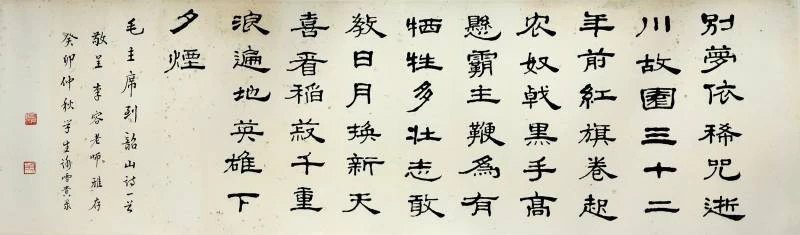 別夢依稀咒逝
川故園三十二
年前紅旗卷起
农奴戟黑手高
懸霸主鞭為有
牺牲多壮志敢
教日月換新天
喜看稻菽千重
浪遍地英雄下
夕煙
毛主席到韶山詩一首
敬呈李容老師雅存
癸卯仲秋学生